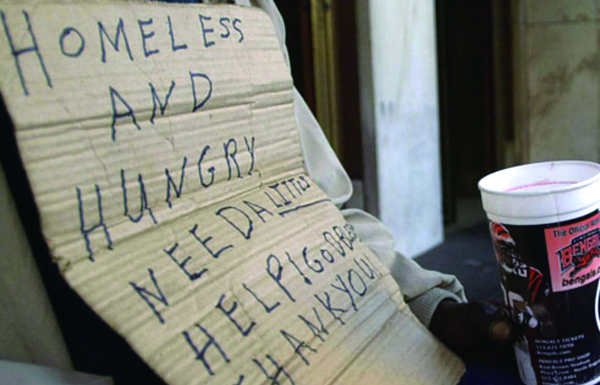 HOMELESS
AND
HUNGRY
NEED A LITTLE
HELP! GOD BLESS
THANK YOU!
The Official
BENGALS
bengals.c
BENGALS TICKETS
bengals.com
BENGALS PRO SHOP